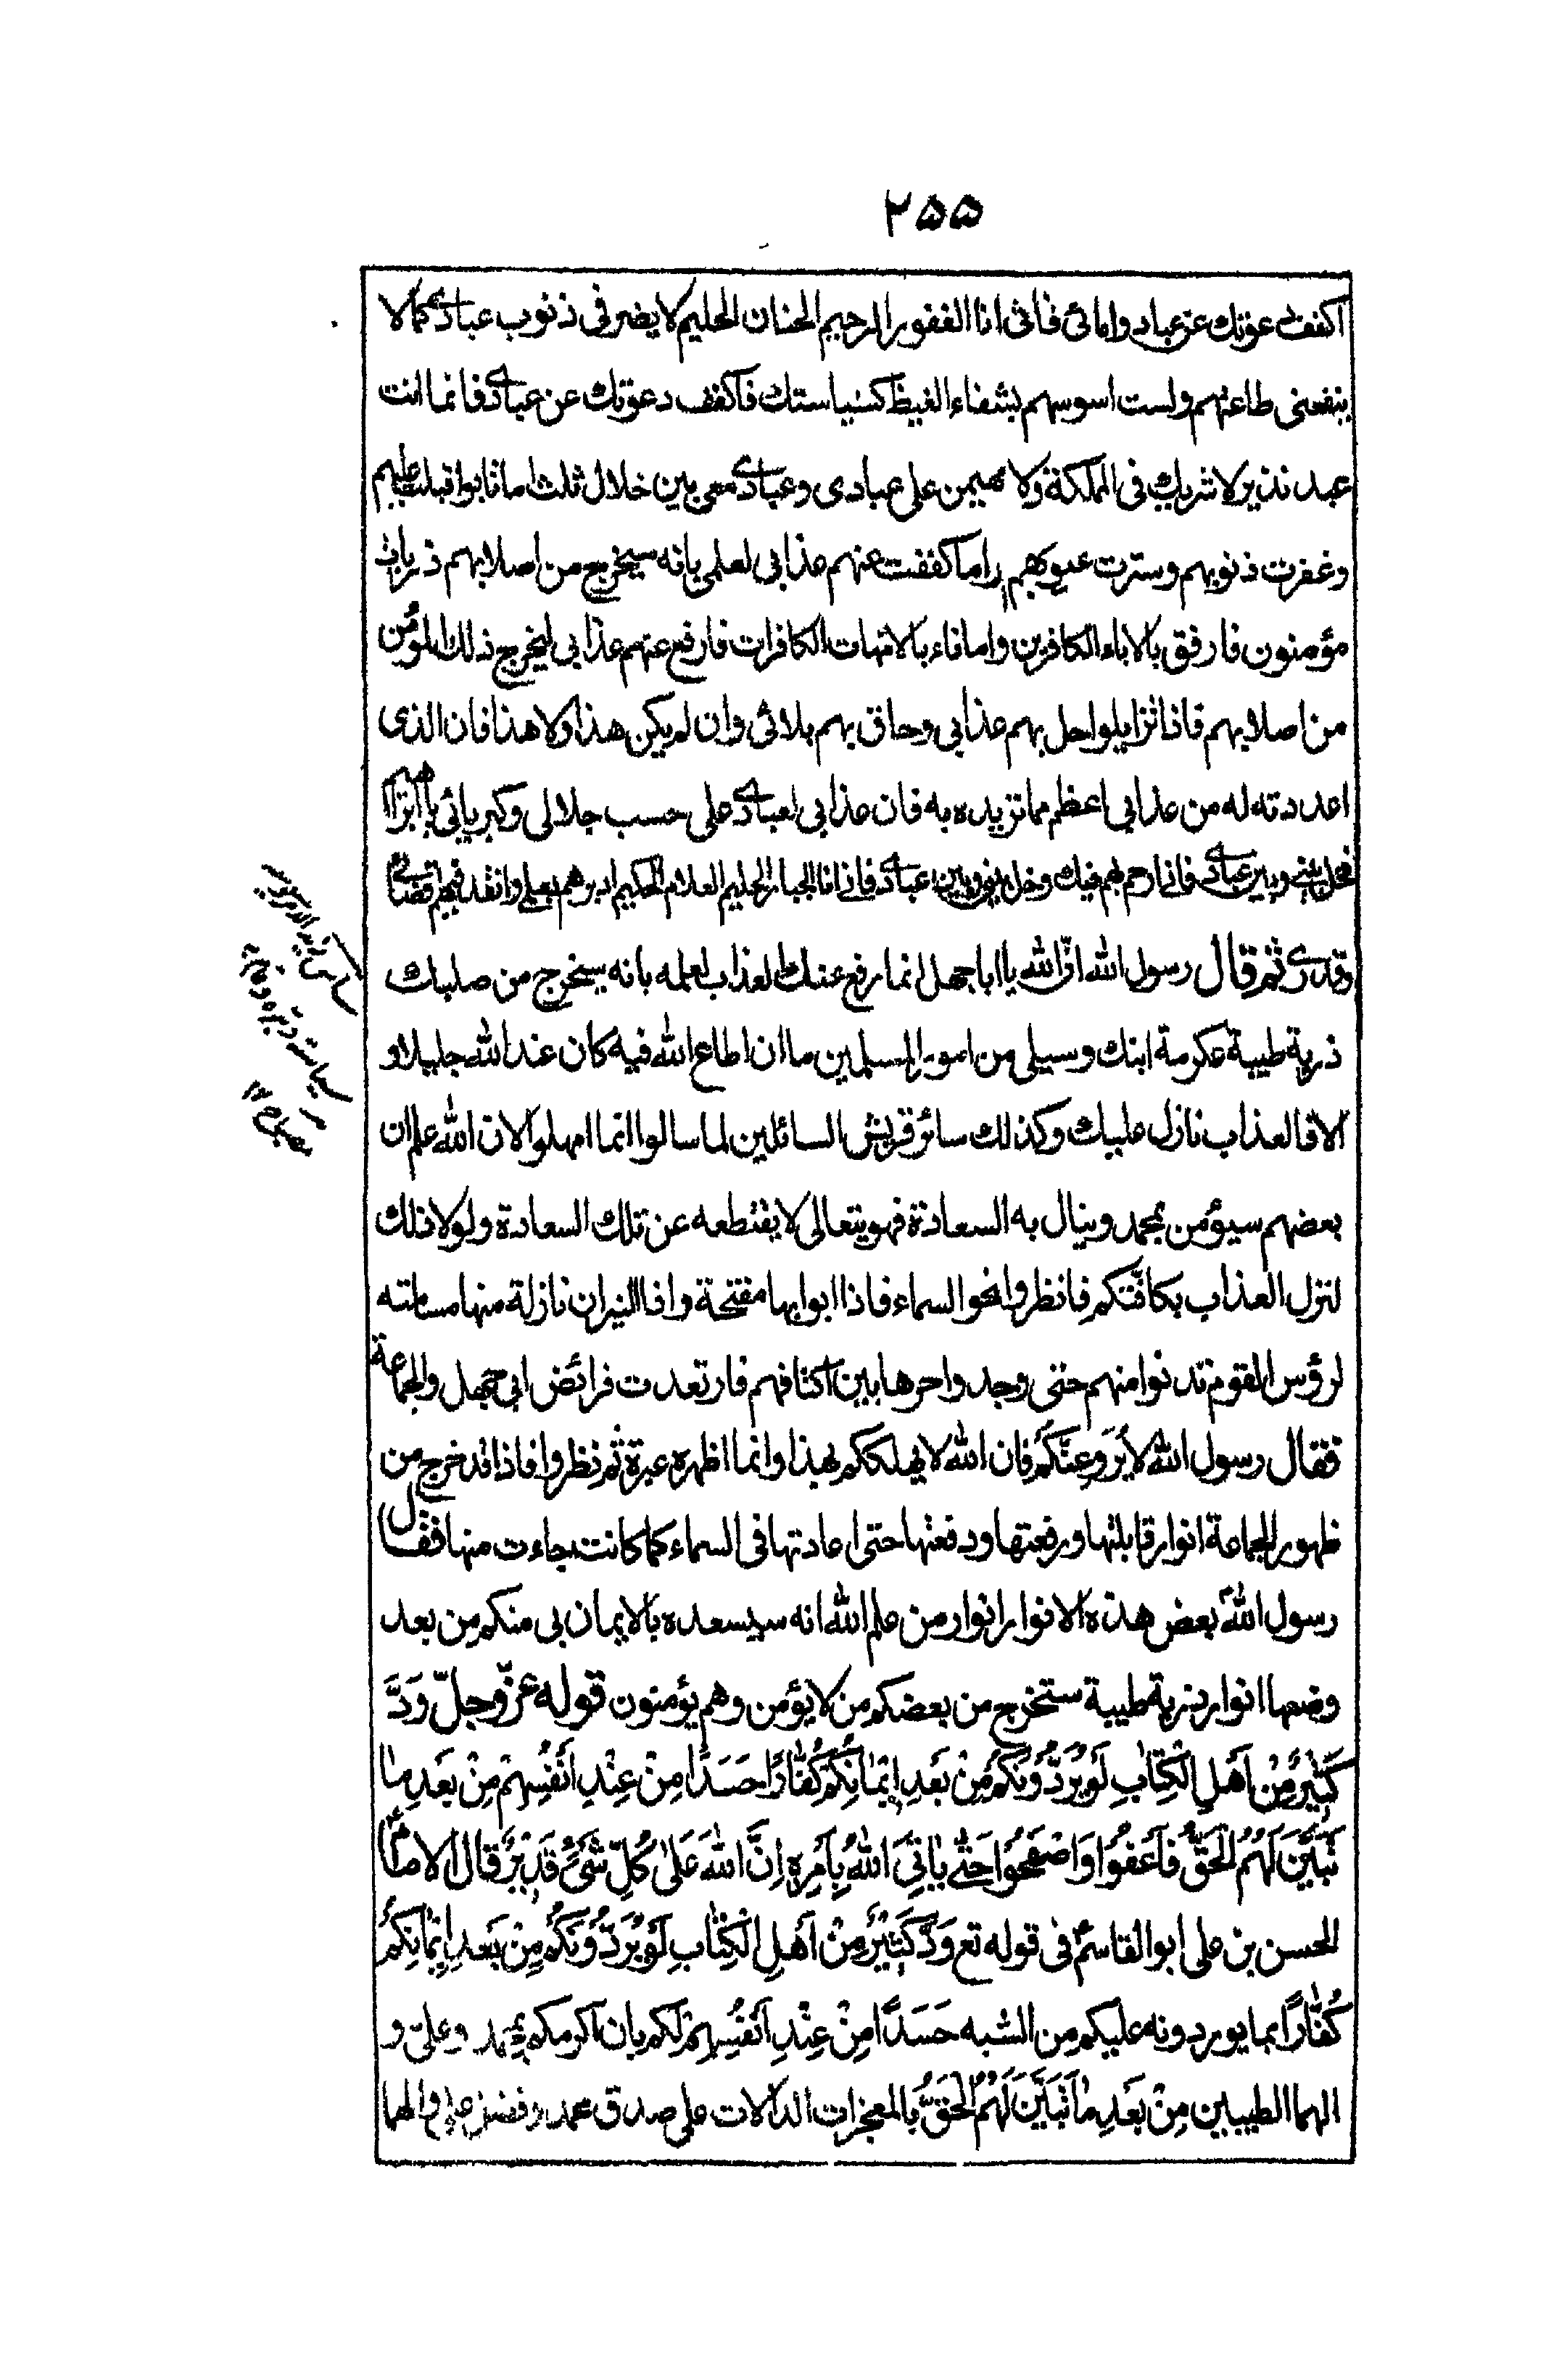 ٢٥٥
اكفف دعوتك عن عبادي وامائى فانى انا الغفور الرحيم الحنان الحليم لا يضرنى ذنوب عبادى كما لا
ينفعنى طاعتهم ولست اسوسهم بشفاء الغيظ كسياستك فاكفف دعوتك عن عبادى فانما انت
عبد نذير لا شريك فى المملكة ولا مهيمن على عبادى وعبادى معى بين خلال ثلث اما تابوا فتبت عليهم
وغفرت ذنوبهم وسترت عيوبهم واما كففت عنهم عذابى لعلمى بانه سيخرج من اصلابهم ذريات
مؤمنون فارفق بالاباء الكافرين واما فاء بالامهات الكافرات فارفع عنهم عذابى ليخرج ذلك المؤمن
من اصلابهم فاذا تزايلوا حل بهم عذابى وحاق بهم بلائى وان لم يكن هذا ولا هذا فان الذى
اعددته له من عذابى اعظم مما تريده به فان عذابى لعبادى على حسب جلالى وكبريائى يا ابراهيم
فخل بينى وبين عبادى فانى ارحم بهم منك وخل بينى وبين عبادى فانى انا الجبار الحليم العلام الحكيم ادبرهم بعلمى وانفذ فيهم قضائى
وقدرى ثم قال رسول الله ان الله يا ابا جهل انما رفع عنك العذاب لعلمه بانه سيخرج من صلبك
ذرية طيبة عكرمة ابنك وسيلى من امور المسلمين ما ان اطاع الله فيه كان عند الله جليلا و
الا فالعذاب نازل عليك وكذلك سائر قريش السائلين لما سالوا انما امهلوا لان الله علم ان
بعضهم سيؤمن بمحمد وينال به السعادة فهو يتعالى لا يقتطعه عن تلك السعادة ولولا ذلك
لنزل العذاب بكافتكم فانظروا نحو السماء فاذا ابوابها مفتحة واذا النيران نازلة منها مسامتته
لرؤس القوم تدنوا منهم حتى وجدوا حرها بين اكتافهم فارتعدت فرائض ابى جهل والجماعة
فقال رسول الله لا يَروعنَّكُم فان الله لا يهلككم بهذا وانما اظهره عبرة ثم نظروا فاذا قد خرج من
ظهور الجماعة انوار قابلتها ورفعتها ودفعتها حتى اعادتها فى السماء كما كانت جاءت منها فقال
رسول الله بعض هذه الانوار انوار من علم الله انه سيسعده بالايمان بى منكم من بعد
وبعضها انوار ذرية طيبة ستخرج من بعضكم من لا يؤمن وهم يؤمنون قوله عزّ وجلّ وَدَّ
كَثيرٌ مِنْ اَهلِ الْكِتابِ لَو يَرُدّوُنَكُم مِنْ بَعدِ ايمانِكُم كُفّارًا حَسَدًا مِنْ عِنْدِ اَنفُسِهِمْ مِنْ بَعدِ ما
تَبَيَّنَ لَهُمُ الْحَقُّ فَاعفُوا وَاصْفَحُوا حَتّى يَاتِىَ اللهُ بِاَمرِهِ اِنَّ اللهَ عَلى كُلِّ شَىْءٍ قَديْرٌ قال الامام
الحسن بن على ابو القاسم فى قوله تع وَدَّ كَثيْرٌ مِنْ اَهلِ الْكِتابِ لَو يَرُدّوُنَكُم مِنْ بَعدِ ايمانِكُم
كُفّارًا بما يوردونه عليكم من الشبه حَسَدًا مِنْ عِنْدِ اَنفُسِهِمْ لكم بان اكرمكم بمحمد وعلىّ و
الهما الطيبين مِنْ بَعدِ ما تَبَيَّنَ لَهُمُ الْحَقُّ بالمعجزات الدالات على صدق محمد وفضل على والهما